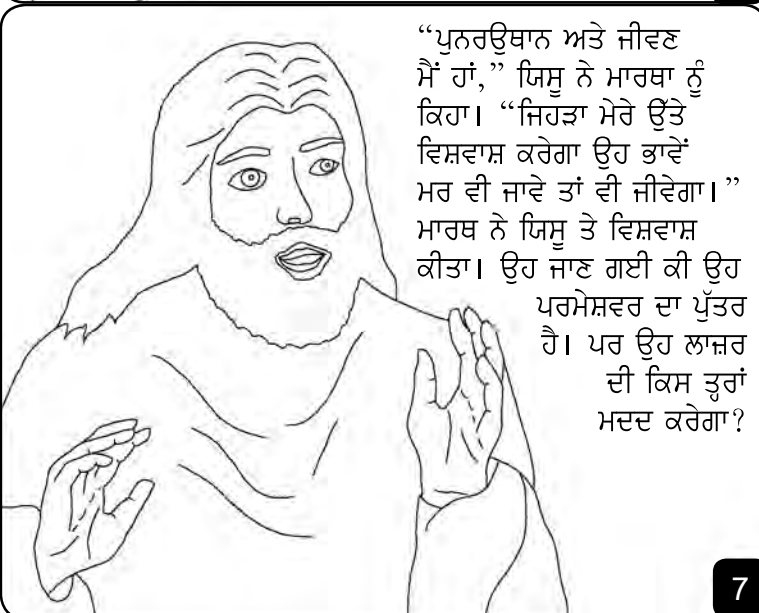 “ਪੁਨਰਉਥਾਨ ਅਤੇ ਜੀਵਣ
ਮੈਂ ਹਾਂ,” ਯਿਸੂ ਨੇ ਮਾਰਥਾ ਨੂੰ
ਕਿਹਾ। “ਜਿਹੜਾ ਮੇਰੇ ਉੱਤੇ
ਵਿਸ਼ਵਾਸ਼ ਕਰੇਗਾ ਉਹ ਭਾਵੇਂ
ਮਰ ਵੀ ਜਾਵੇ ਤਾਂ ਵੀ ਜੀਵੇਗਾ।”
ਮਾਰਥ ਨੇ ਯਿਸੂ ਤੇ ਵਿਸ਼ਵਾਸ਼
ਕੀਤਾ। ਉਹ ਜਾਣ ਗਈ ਕੀ ਉਹ
ਪਰਮੇਸ਼ਵਰ ਦਾ ਪੁੱਤਰ
ਹੈ। ਪਰ ਉਹ ਲਾਜ਼ਰ
ਦੀ ਕਿਸ ਤ੍ਹਰਾਂ
ਮਦਦ ਕਰੇਗਾ?
7